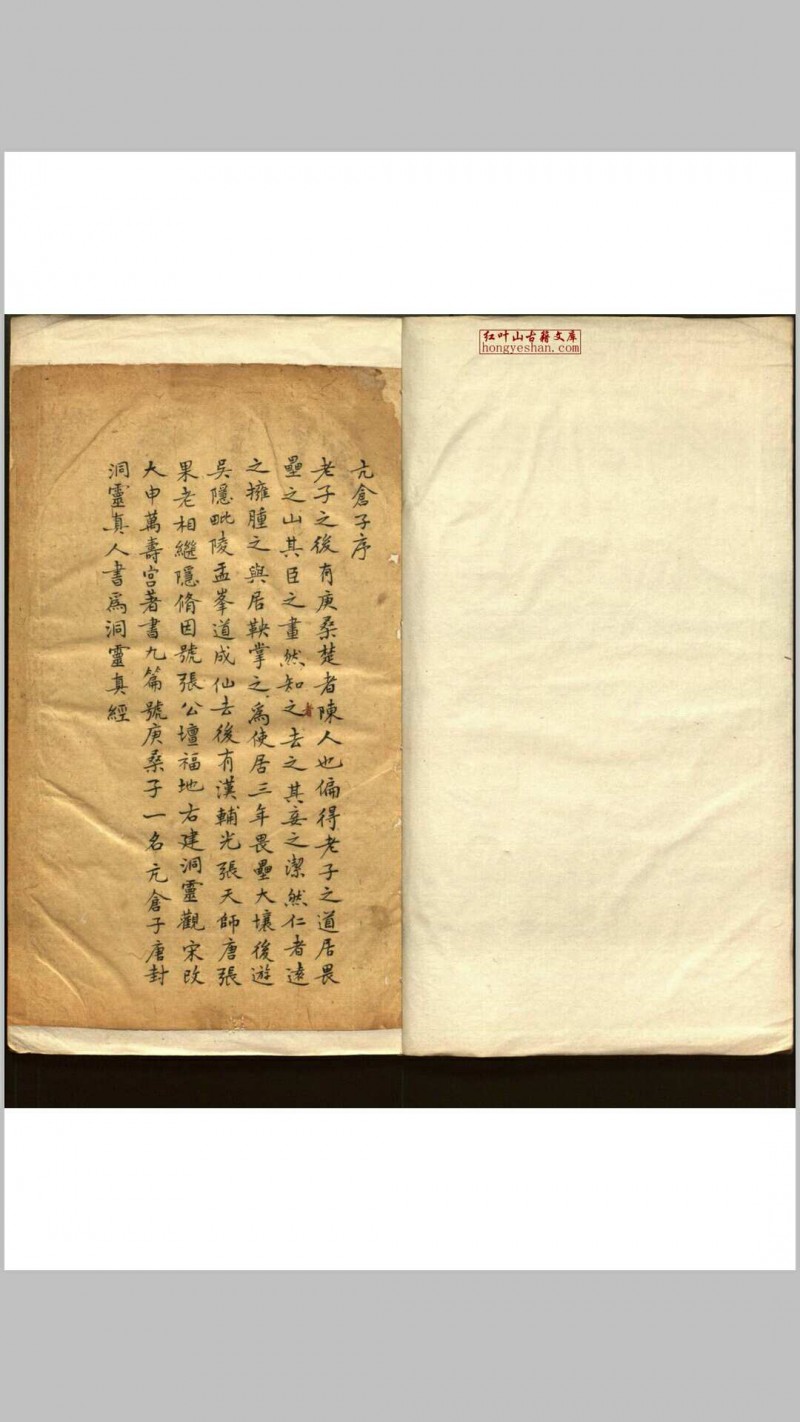 亢倉子序
老子之後有庚桑楚者陳人也偏得老子之道居畏
壘之山其臣之畫然知者去之其妾之潔然仁者遠
之擁腫之與居鞅掌之爲使居三年畏壘大壤後遊
吳隱毗陵孟峯道成仙去後有漢輔光張天師唐張
果老相繼隱脩因號張公壇福地右建洞靈觀宋改
天申萬壽宮著書九篇號庚桑子一名亢倉子唐封
洞靈真人書爲洞靈真經
红叶山古籍文库
hongyeshan.com